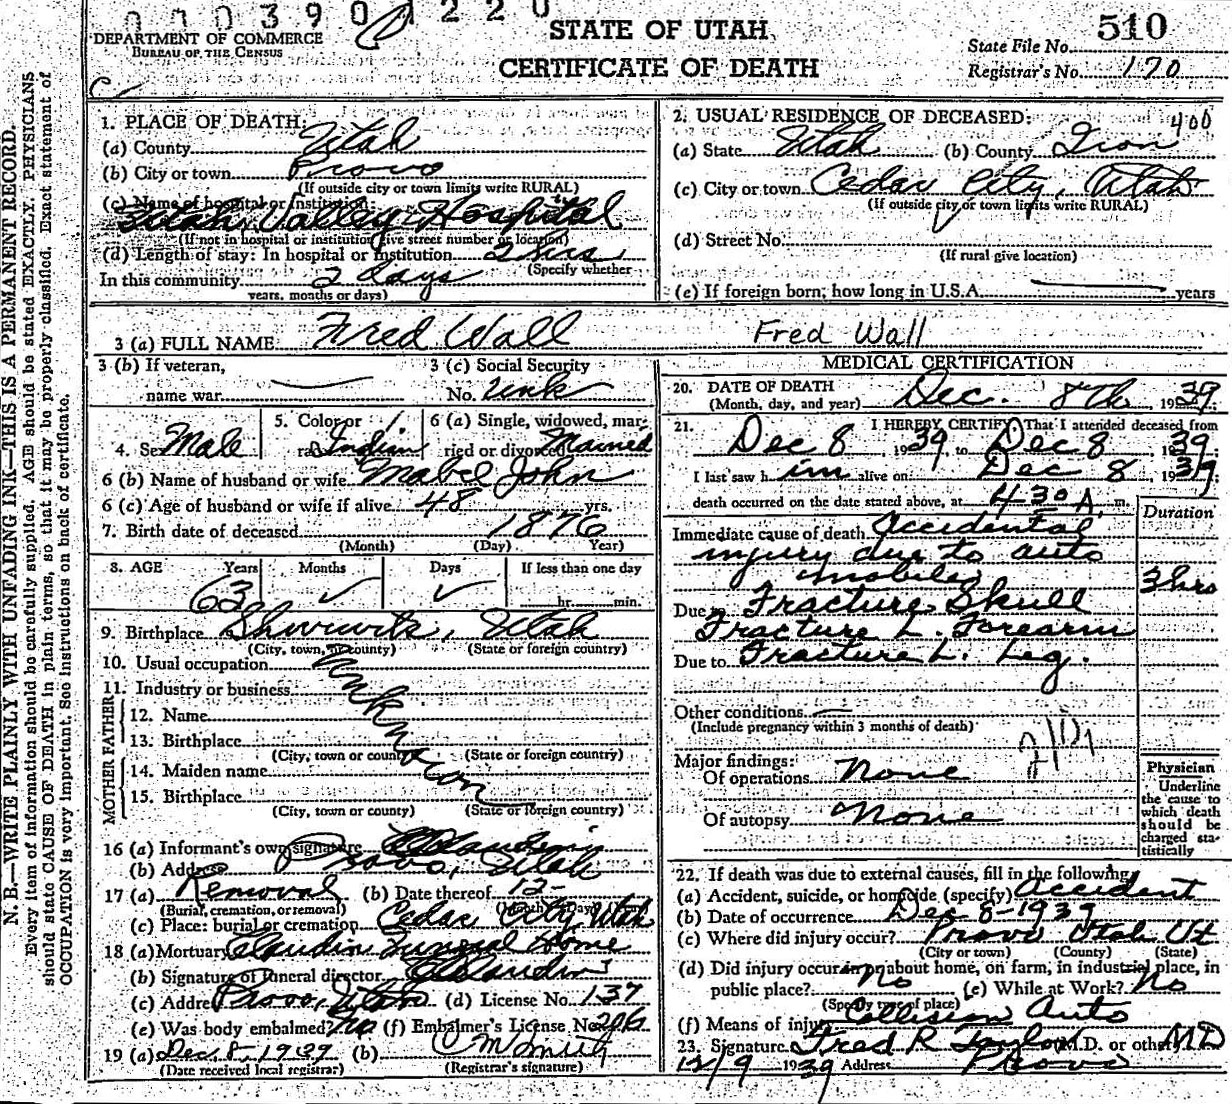 0 7 0 3 9 0 1 2 2 0
DEPARTMENT OF COMMERCE
BUREAU OF THE CENSUS
STATE OF UTAH
CERTIFICATE OF DEATH
510
State File No.
Registrar's No. 170
N. B.—WRITE PLAINLY WITH UNFADING INK—THIS IS A PERMANENT RECORD.
Every item of information should be carefully supplied. AGE should be stated EXACTLY. PHYSICIANS
should state CAUSE OF DEATH in plain terms, so that it may be properly classified. Exact statement of
OCCUPATION is very important. See instructions on back of certificate.
1. PLACE OF DEATH:
(a) County Utah
(b) City or town Provo
(If outside city or town limits write RURAL)
(c) Name of hospital or institution:
Utah Valley Hospital
(If not in hospital or institution give street number or location)
(d) Length of stay: In hospital or institution 2 hrs
(Specify whether
In this community 2 days
years, months or days)
2. USUAL RESIDENCE OF DECEASED: 400
(a) State Utah (b) County Iron
(c) City or town Cedar City, Utah
(If outside city or town limits write RURAL)
(d) Street No.
(If rural give location)
(e) If foreign born, how long in U.S.A. years
3 (a) FULL NAME Fred Wall Fred Wall
3 (b) If veteran,
name war
3 (c) Social Security
No. unk
4. Sex Male
5. Color or
race Indian
6 (a) Single, widowed, mar-
ried or divorced Married
6 (b) Name of husband or wife Mabel John
6 (c) Age of husband or wife if alive 48 yrs.
7. Birth date of deceased 1876
(Month) (Day) Year)
8. AGE Years Months Days If less than one day
63 ✓ ✓ hr. min.
9. Birthplace Shivwits, Utah
(City, town, or county) (State or foreign country)
10. Usual occupation
11. Industry or business
Unknown
FATHER
12. Name
13. Birthplace
(City, town or county) (State or foreign country)
MOTHER
14. Maiden name
15. Birthplace
(City, town or county) (State or foreign country)
16 (a) Informant's own signature
(b) Address Provo, Utah
17 (a) Removal (b) Date thereof 12-
(Burial, cremation, or removal)
(c) Place: burial or cremation Cedar City, Utah
18 (a) Mortuary Claudin Funeral Home
(b) Signature of funeral director
(c) Address Provo, Utah (d) License No. 137
(e) Was body embalmed? no (f) Embalmer's License No. 206
19 (a) Dec. 8, 1939 (b)
(Date received local registrar) (Registrar's signature)
MEDICAL CERTIFICATION
20. DATE OF DEATH
(Month, day, and year) Dec. 8th, 1939
21. I HEREBY CERTIFY That I attended deceased from
Dec 8 1939 to Dec 8, 1939
I last saw him alive on Dec 8, 1939
death occurred on the date stated above, at 4 30 A. m.
Duration
Immediate cause of death Accidental
injury due to auto
mobiles
3 hrs
Due to Fracture Skull
Fracture L. Forearm
Due to Fracture L. Leg.
Other conditions
(Include pregnancy within 3 months of death)
Major findings:
Of operations None
Of autopsy None
Physician
Underline
the cause to
which death
should be
charged sta-
tistically
22. If death was due to external causes, fill in the following:
(a) Accident, suicide, or homicide (specify) accident
(b) Date of occurrence Dec 8-1939
(c) Where did injury occur? Provo Utah Ut
(City or town) (County) (State)
(d) Did injury occur in or about home, on farm, in industrial place, in
public place? No (e) While at Work? No
(Specify type of place)
(f) Means of injury Collision Auto
23. Signature Fred R Taylor (M.D. or other) MD
12/9 1939 Address Provo